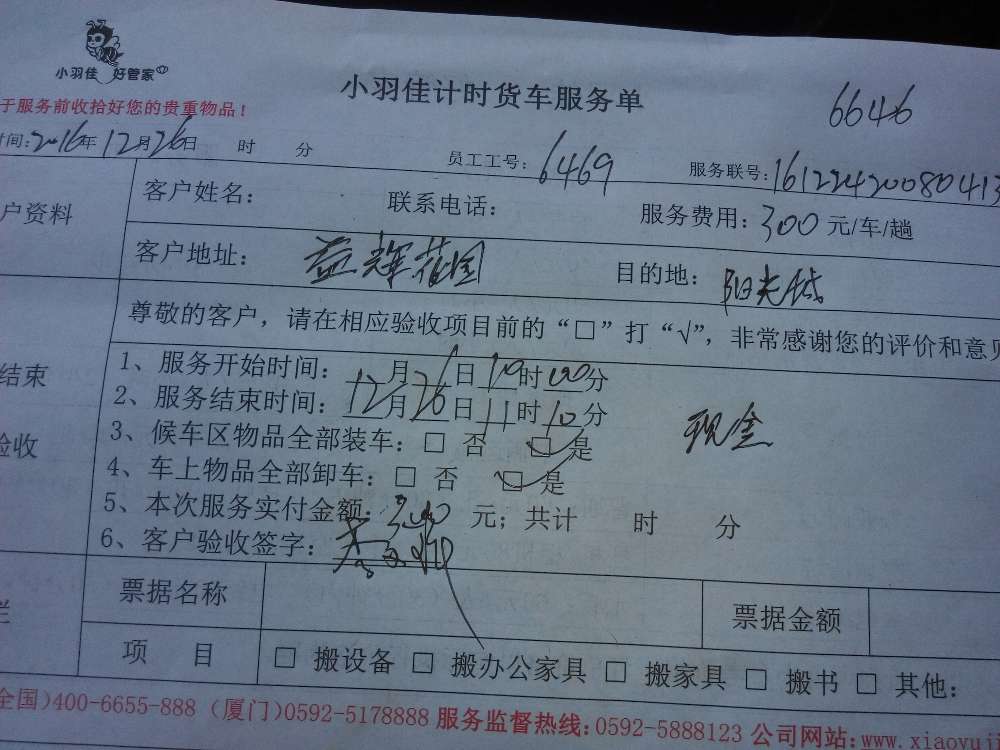 小羽佳 好管家
小羽佳计时货车服务单
6646
于服务前收拾好您的贵重物品！
时间：2016年12月26日 时 分
员工工号：6469
服务联号：16122420080413
户资料
客户姓名： 联系电话： 服务费用：300元/车/趟
客户地址：益辉花园 目的地：阳光城
尊敬的客户，请在相应验收项目前的“□”打“√”，非常感谢您的评价和意见
结束
验收
1、服务开始时间：12月26日10时00分
2、服务结束时间：12月26日11时10分
现金
3、候车区物品全部装车：□ 否 ☑ 是
4、车上物品全部卸车：□ 否 ☑ 是
5、本次服务实付金额：300元；共计 时 分
6、客户验收签字：
票据名称 票据金额
项 目 □ 搬设备 □ 搬办公家具 □ 搬家具 □ 搬书 □ 其他：
全国)400-6655-888（厦门)0592-5178888 服务监督热线:0592-5888123 公司网站:www.xiaoyuj